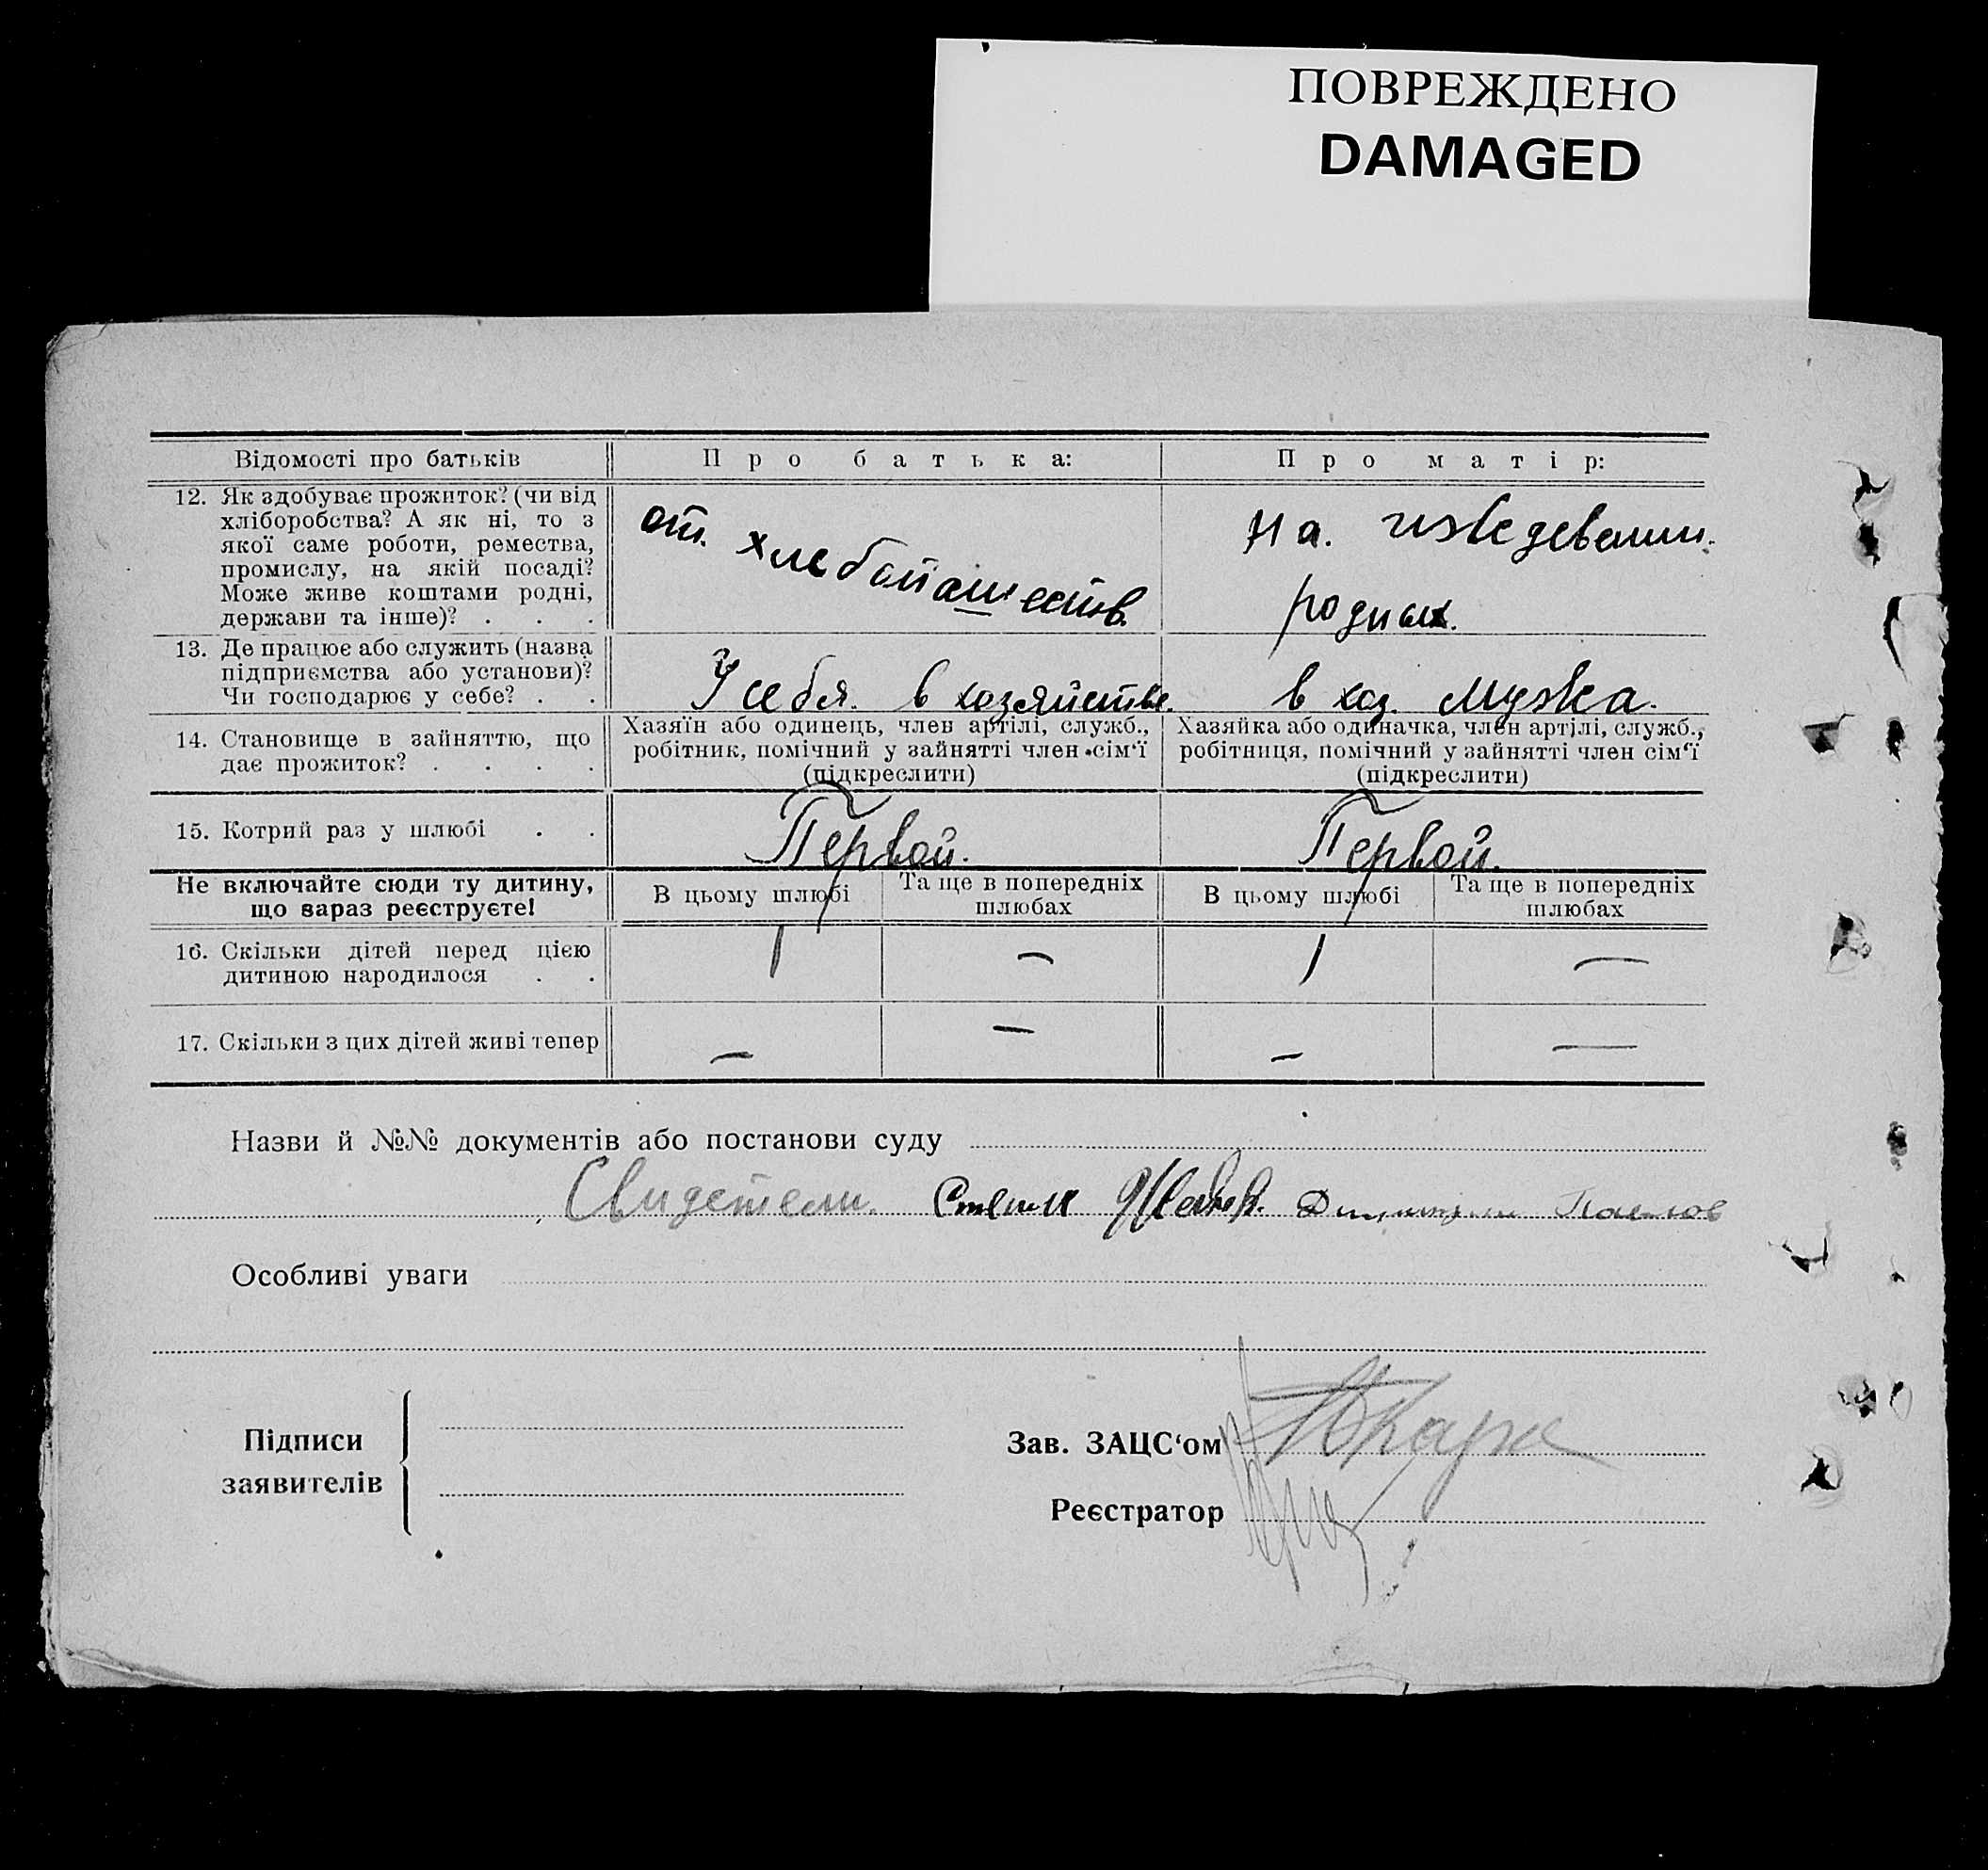 ПОВРЕЖДЕНО
DAMAGED
Відомості про батьків
Про батька:
Про матір:
12. Як здобуває прожиток? (чи від
хліборобства? А як ні, то з
якої саме роботи, ремества,
промислу, на якій посаді?
Може живе коштами родні,
держави та інше)? . . .
от.
На.
родных.
13. Де працює або служить (назва
підприємства або установи)?
Чи господарює у себе? . .
У себя. в хозяйстве.
в хоз. мужа.
14. Становище в зайняттю, що
дає прожиток? . . . .
Хазяїн або одинець, член артілі, служб.,
робітник, помічний у зайнятті член сім‘ї
(підкреслити)
Хазяйка або одиначка, член артілі, служб.,
робітниця, помічний у зайнятті член сім‘ї
(підкреслити)
15. Котрий раз у шлюбі . .
Первой.
Первой.
Не включайте сюди ту дитину,
що зараз реєструєте!
В цьому шлюбі
Та ще в попередніх
шлюбах
В цьому шлюбі
Та ще в попередніх
шлюбах
16. Скільки дітей перед цією
дитиною народилося . .
1
—
1
—
17. Скільки з цих дітей живі тепер
—
—
—
—
Назви й №№ документів або постанови суду
Свидетели.
Особливі уваги
Підписи
заявителів
Зав. ЗАЦС‘ом
Реєстратор